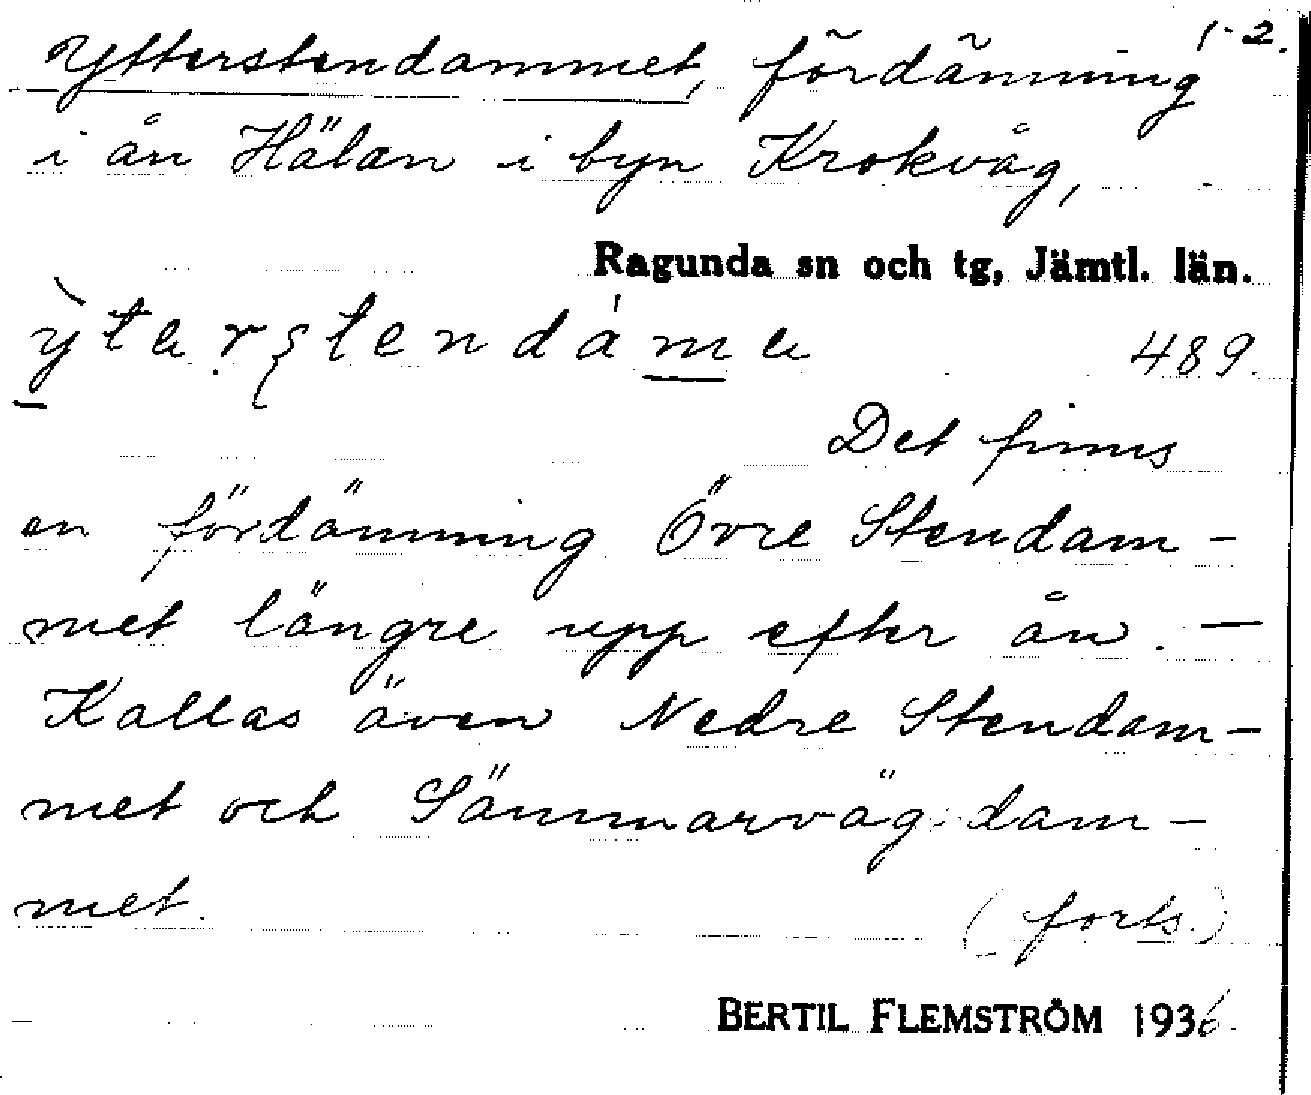 1-2.
Ytterstendammet, fördämning
i ån Hälan i byn Krokvåg,
Ragunda sn och tg, Jämtl. län.
489.
Det finns
en fördämning Övre Stendam-
met längre upp efter ån. —
Kallas även Nedre Stendam-
met och Sämmarvägdam-
met.
(forts.)
BERTIL FLEMSTRÖM 1936.